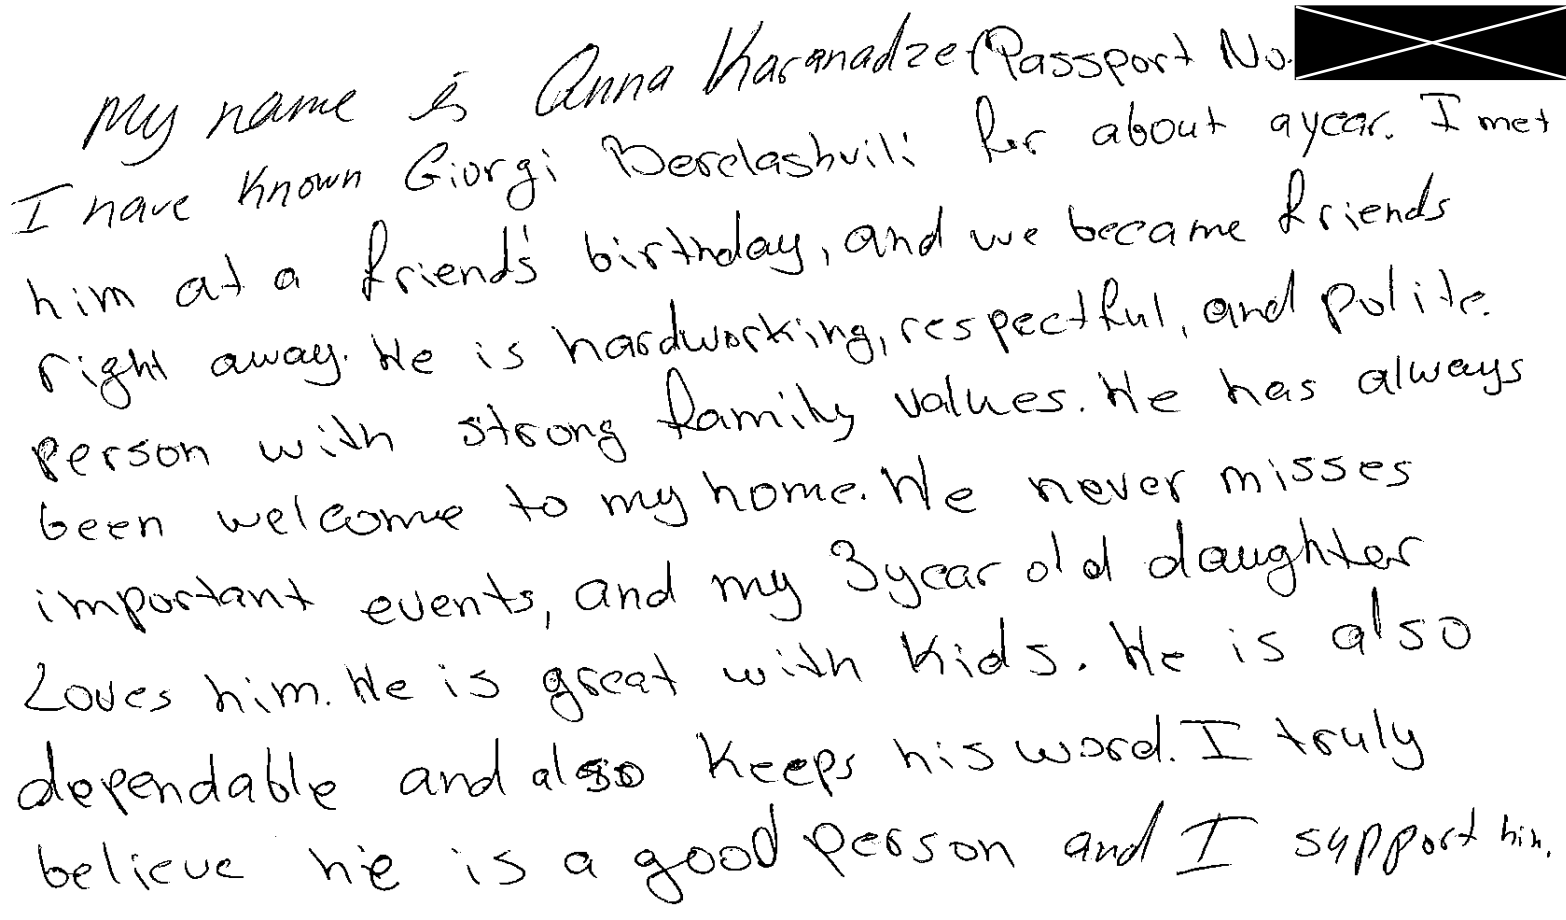 My name is Anna Karanadze (Passport No.
I have known Giorgi Berelashvili for about a year. I met
him at a friend's birthday, and we became friends
right away. He is hardworking, respectful, and polite.
person with strong family values. He has always
been welcome to my home. He never misses
important events, and my 3 year old daughter
Loves him. He is great with kids. He is also
dependable and also keeps his word. I truly
believe he is a good person and I support him.